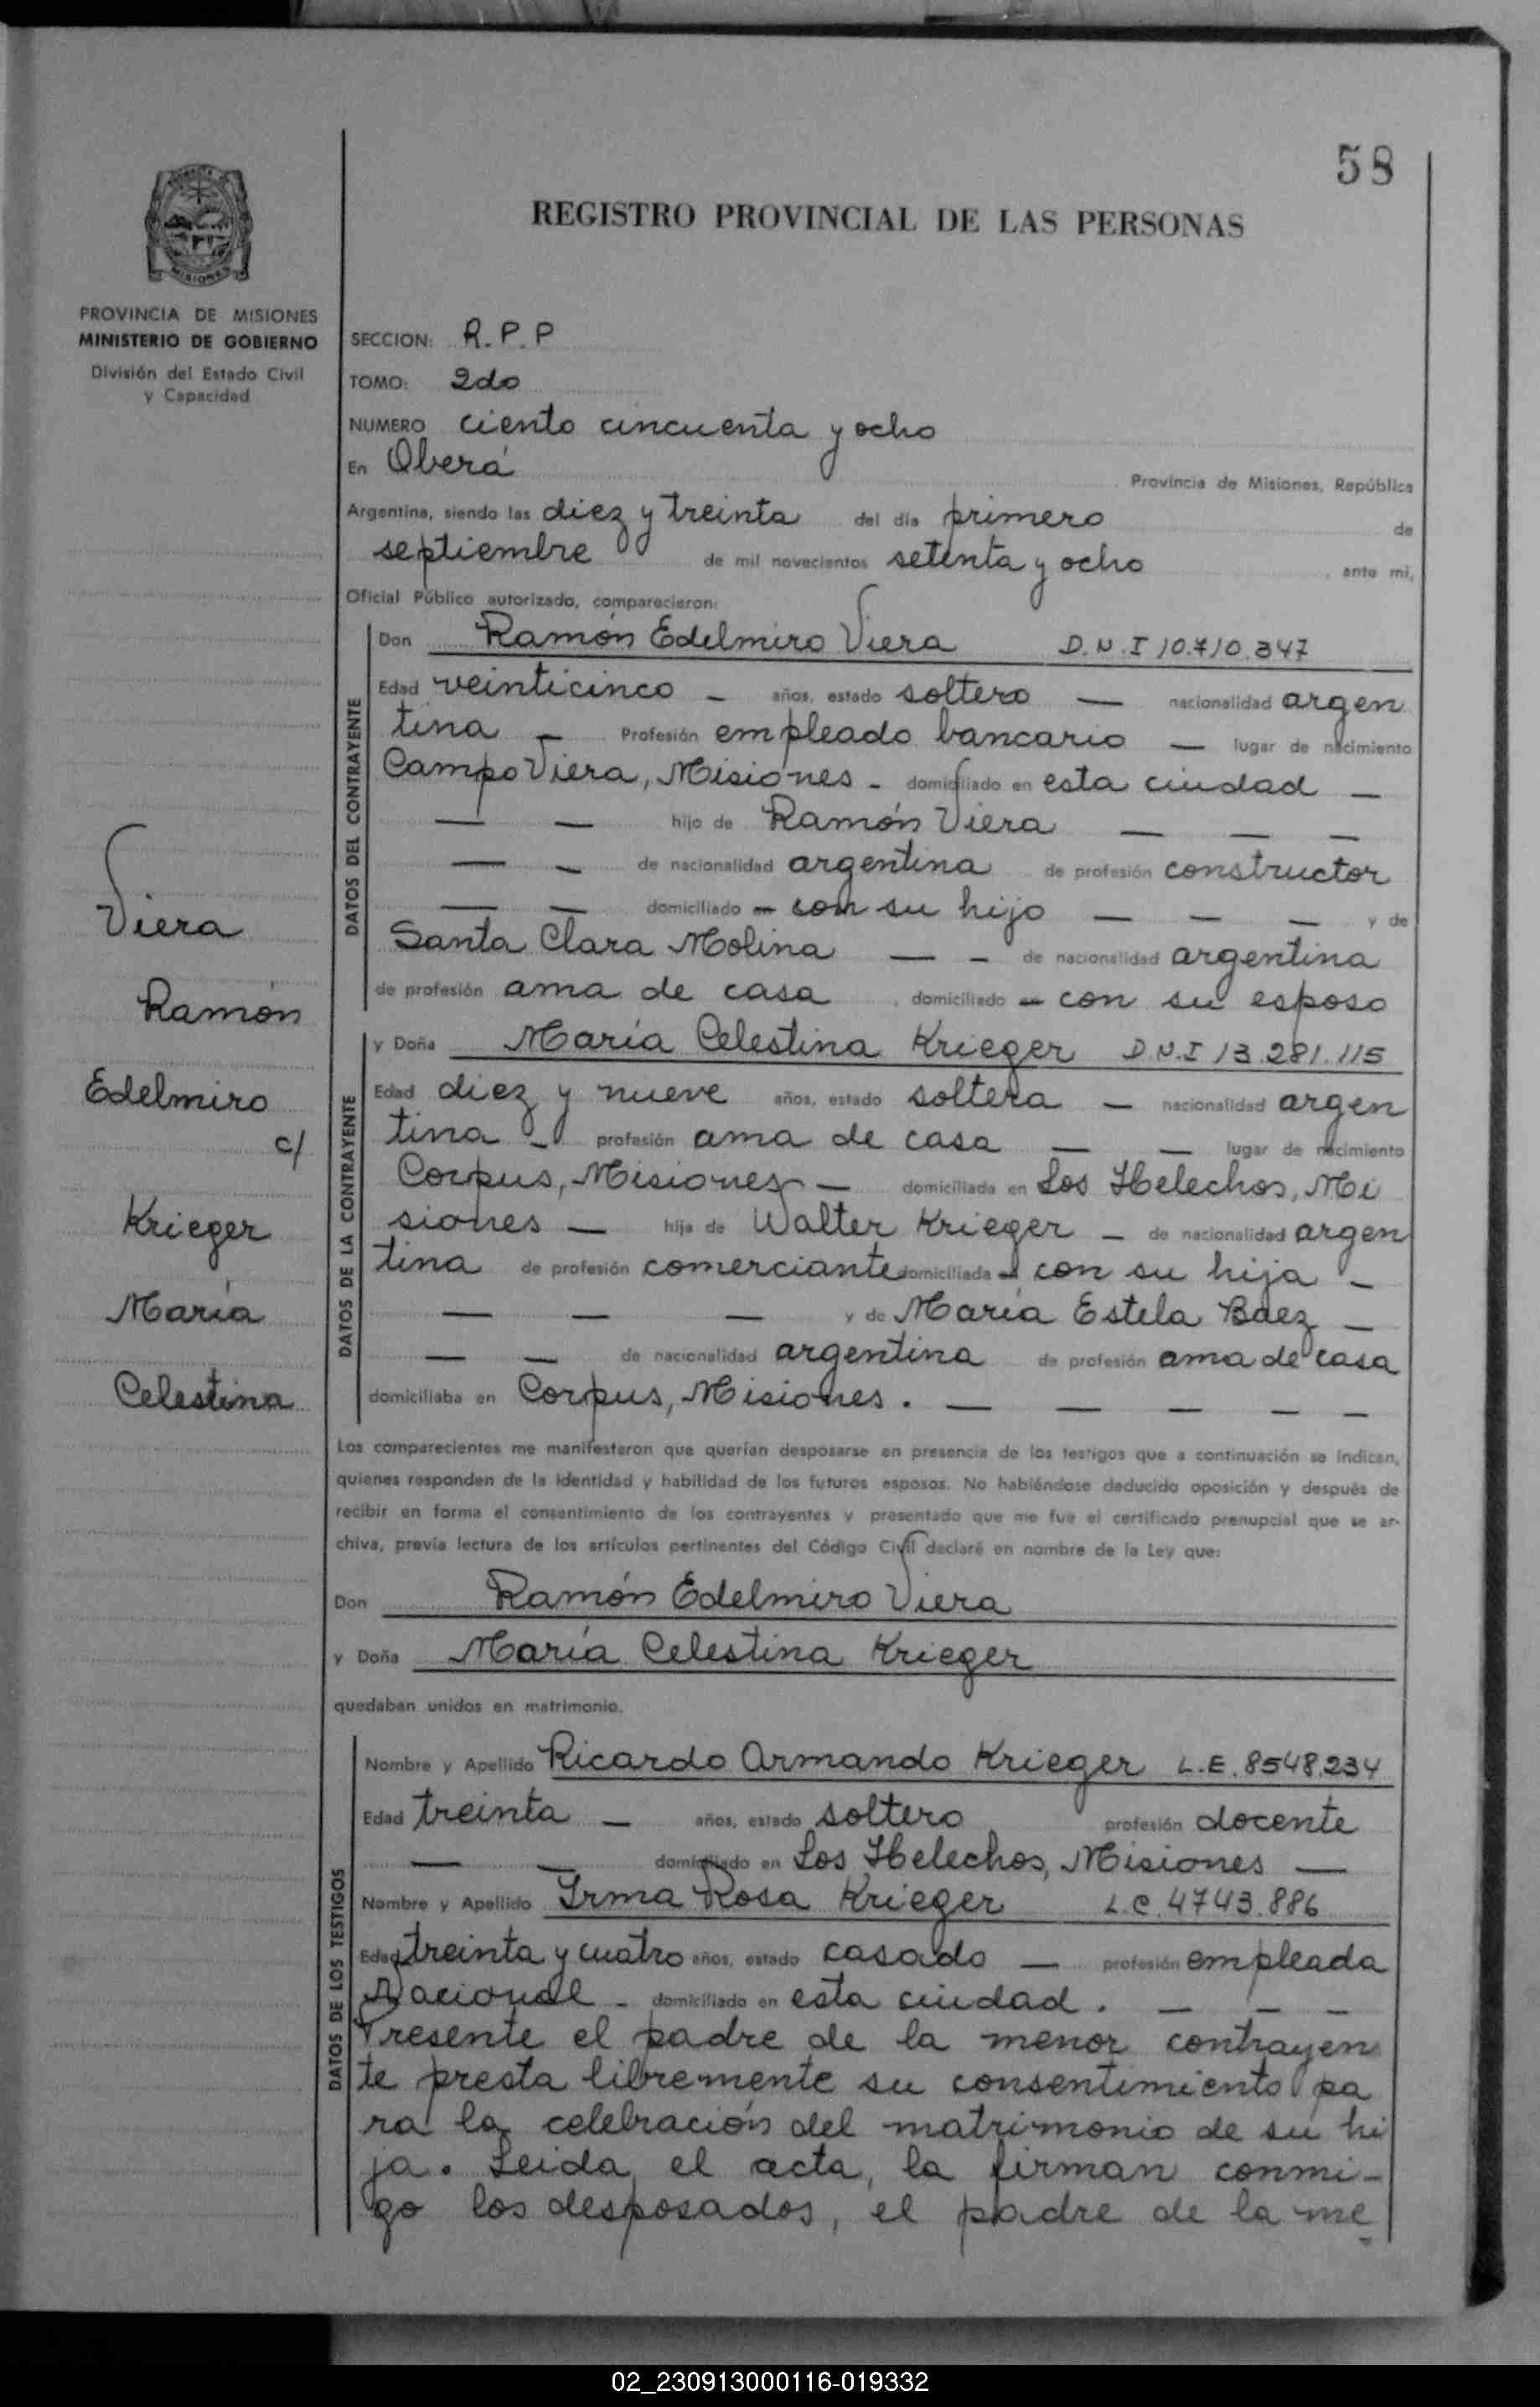 58
REGISTRO PROVINCIAL DE LAS PERSONAS
MISIONES
PROVINCIA DE MISIONES
MINISTERIO DE GOBIERNO
División del Estado Civil
y Capacidad
SECCION: R.P.P
TOMO: 2do
NUMERO ciento cincuenta y ocho
En Oberá Provincia de Misiones, República
Argentina, siendo las diez y treinta del día primero de
septiembre de mil novecientos setenta y ocho, ante mi,
Oficial Público autorizado, comparecieron:
DATOS DEL CONTRAYENTE
Don Ramón Edelmiro Viera D.N.I 10.710.347
Edad veinticinco - años, estado soltero - nacionalidad argen
tina - Profesión empleado bancario - lugar de nacimiento
Campo Viera, Misiones - domiciliado en esta ciudad -
- - hijo de Ramón Viera - - -
- - de nacionalidad argentina de profesión constructor
- - domiciliado en con su hijo - - - y de
Santa Clara Molina - - de nacionalidad argentina
de profesión ama de casa, domiciliado en con su esposo
DATOS DE LA CONTRAYENTE
y Doña María Celestina Krieger D.N.I 13.281.115
Edad diez y nueve años, estado soltera - nacionalidad argen
tina - profesión ama de casa - - lugar de nacimiento
Corpus, Misiones - domiciliada en Los Helechos, Mi
siones - hija de Walter Krieger - de nacionalidad argen
tina de profesión comerciante domiciliada en con su hija -
- - - y de María Estela Baez -
- - de nacionalidad argentina de profesión ama de casa
domiciliaba en Corpus, Misiones. - - - - -
Viera
Ramón
Edelmiro
c/
Krieger
María
Celestina
Los comparecientes me manifestaron que querían desposarse en presencia de los testigos que a continuación se indican,
quienes responden de la identidad y habilidad de los futuros esposos. No habiéndose deducido oposición y después de
recibir en forma el consentimiento de los contrayentes y presentado que me fue el certificado prenupcial que se ar-
chiva, previa lectura de los artículos pertinentes del Código Civil declaré en nombre de la Ley que:
Don Ramón Edelmiro Viera
y Doña María Celestina Krieger
quedaban unidos en matrimonio.
DATOS DE LOS TESTIGOS
Nombre y Apellido Ricardo Armando Krieger L.E. 8548.234
Edad treinta - años, estado soltero profesión docente
- - domiciliado en Los Helechos, Misiones -
Nombre y Apellido Irma Rosa Krieger L.C. 4743.886
Edad treinta y cuatro años, estado casado - profesión empleada
Nacional - domiciliado en esta ciudad. - - -
Presente el padre de la menor contrayen
te presta libremente su consentimiento pa
ra la celebración del matrimonio de su hi
ja. Leida el acta, la firman conmi-
go los desposados, el padre de la me
02_230913000116-019332